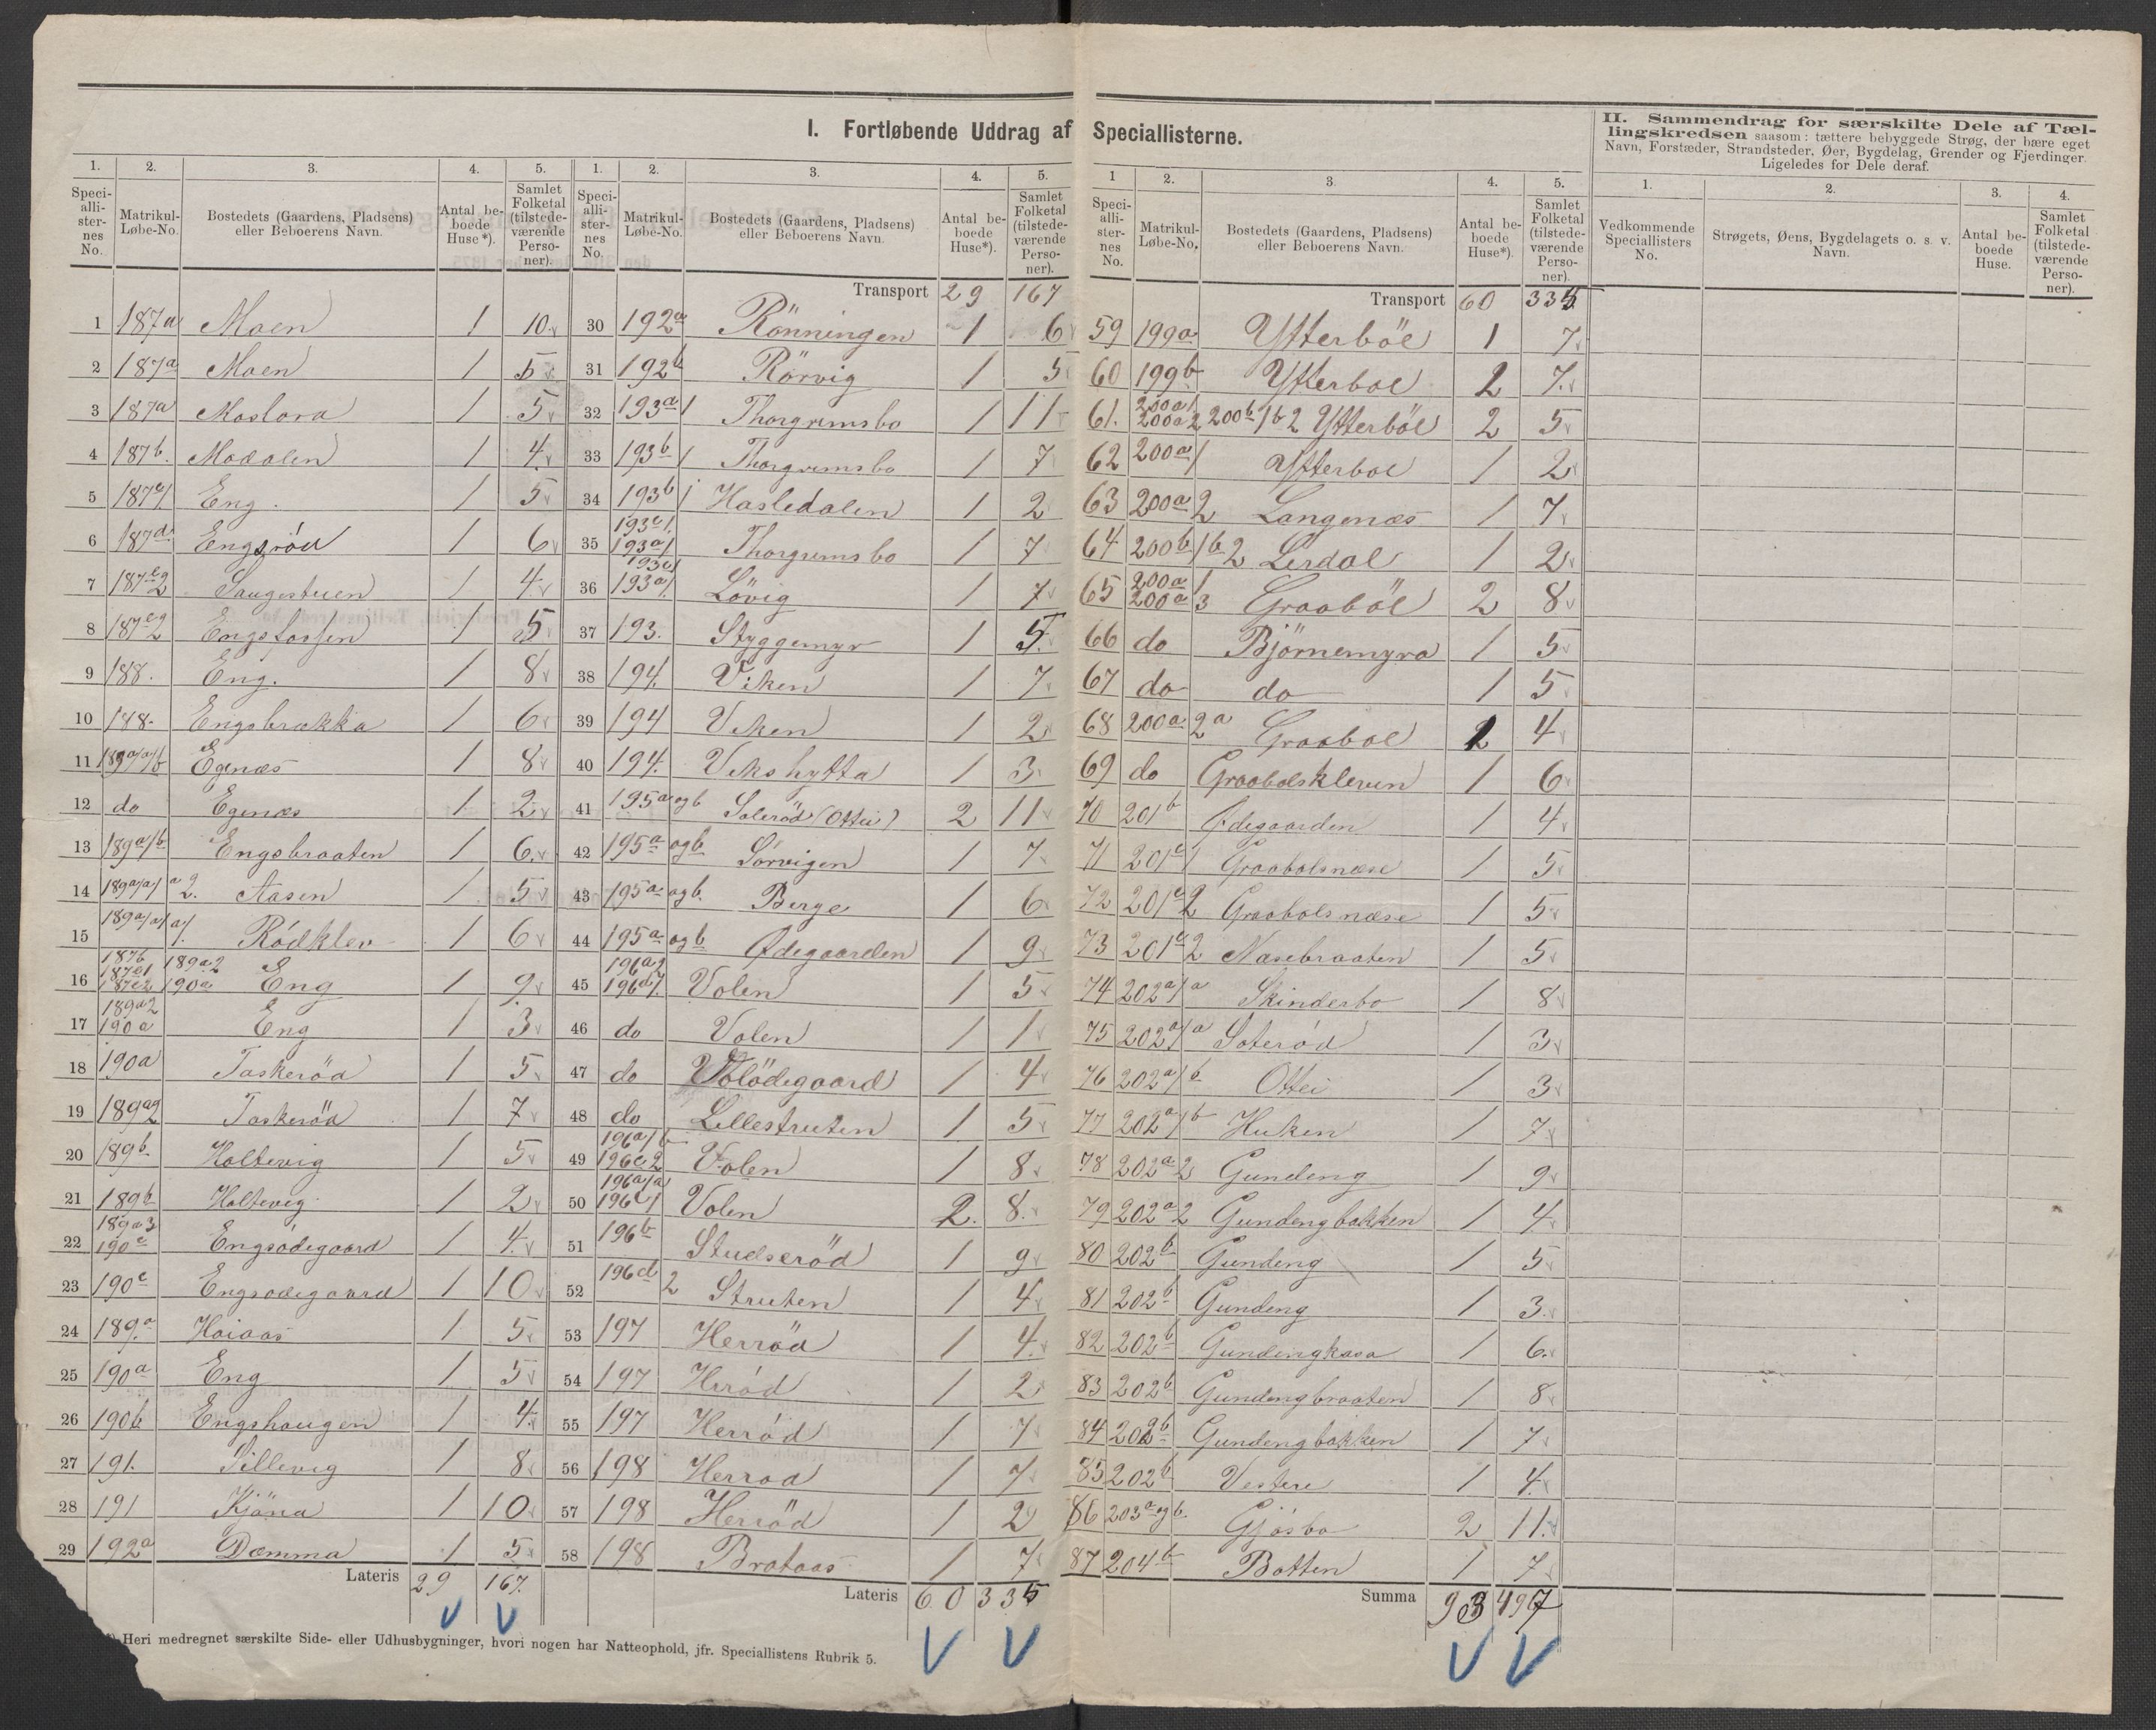 I. Fortløbende Uddrag af Speciallisterne.
II. Sammendrag for særskilte Dele af Tæl-
lingskredsen saasom: tættere bebyggede Strøg, der bære eget
Navn, Forstæder, Strandsteder, Øer, Bygdelag, Grender og Fjerdinger.
Ligeledes for Dele deraf.
1. 2. 3. 4. 5.
Speciallisternes No. Matrikul-Løbe-No. Bostedets (Gaardens, Pladsens) eller Beboerens Navn. Antal beboede Huse*). Samlet Folketal (tilstedeværende Personer).
1 187a Moen 1 10
2 187a Moen 1 5
3 187a Moslora 1 5
4 187b. Modalen 1 4
5 187c1 Eng. 1 5
6 187d. Engsröd 1 6
7 187c2 Saugestuen 1 4
8 187c2 Engsfossen 1 5
9 188. Eng. 1 8
10 188. Engsbrækka 1 6
11 Egenæs 1 8
12 do Egenæs 1 2
13 189a1b Engsbraaten 1 6
14 189a1a1 a2. Aasen 1 5
15 189a1a1a1. Rödklev 1 6
16 187b 187c1 187c2 189a2 190a Eng 1 9
17 189a2 190a Eng 1 3
18 190a Taskeröd 1 5
19 189a2 Taskeröd 1 7
20 189b Holtevig 1 5
21 189b Holtevig 1 2
22 189a3 190c Engsödegaard 1 4
23 190c Engsodegaard 1 10
24 189.a Hoiaas 1 5
25 190a Eng 1 5
26 190b Engshaugen 1 4
27 191. Sillevig 1 8
28 191 Kjöna 1 10
29 192a Domma 1 5
Lateris 29 167.
1. 2. 3. 4. 5.
Speciallisternes No. Matrikul-Løbe-No. Bostedets (Gaardens, Pladsens) eller Beboerens Navn. Antal beboede Huse*). Samlet Folketal (tilstedeværende Personer).
Transport 29 167
30 192a Rönningen 1 6
31 192b Rörvig 1 5
32 193a1 Thorgrimsbo 1 11
33 193b1 Thorgrimsbo 1 7
34 193b1 Hasledalen 1 2
35 193c1. 193a1 Thorgrimsbo 1 7
36 193c1 193a1. Lövig 1 7
37 193. Styggemyr 1 5.
38 194. Viken 1 7
39 194 Viken 1 2
40 194. Vikshytta 1 3
41 195a og b Soleröd (Ottei) 2 11
42 195a og b Sörvigen 1 7
43 195a og b. Berge 1 6
44 195a og b Ødegaarden 1 9
45 196a2 Volen 1 5
46 do Volen 1 1
47 do Volödegaard 1 4
48 do Lillestruten 1 5
49 196a1b 196c2 Volen 1 8
50 196a1a 196c1 Volen 2. 8.
51 196b Studseröd 1 9
52 196d 2 Struten 1 4
53 197 Herröd 1 4
54 197 Heröd 1 2
55 197 Herröd 1 7
56 198 Herrod 1 7
57 198 Herröd 1 2
58 198 Brataas 1 7
Lateris 60 335
1 2. 3. 4. 5.
Speciallisternes No. Matrikul-Løbe-No. Bostedets (Gaardens, Pladsens) eller Beboerens Navn. Antal beboede Huse*). Samlet Folketal (tilstedeværende Personer).
Transport 60 335
59 199a Ytterböl 1 7
60 199b Ytterbol 2 7
61. 200a1 200a2 200b1b2 Ytterböl 2 5
62 200a1 Ytterbol 1 2
63 200a2 Langenæs 1 7
64 200b1b2 Lerdal 1 2
65 200a1 200a3 Graaböl 2 8
66 do Björnemyra 1 5
67 do do 1 5
68 200a2a Graabol 2 4
69 do Graabolskleven 1 6
70 201b Ødegaarden 1 4
71 201c1 Graabolsnæse 1 5
72 201c2 Graabolsnæse 1 5
73 201c2 Næsebraaten 1 5
74 202a1a Skinderbo 1 8
75 202a1a Soteröd 1 3
76 202a1b Ottei 1 3
77 202a1b Huken 1 7
78 202a2 Gundeng 1 9
79 202a2 Gundengbakken 1 4
80 202b Gundeng 1 5
81 202b Gundeng 1 3
82 202b Gundengkasa 1 6
83 202b Gundengbraaten 1 8
84 202b Gundengbakken 1 7
85 202b Vestere 1 4
86 203a og b. Gjösbo 2 11
87 204b Botten 1 7
Summa 93 497
1. 2. 3. 4.
Vedkommende Speciallisters No. Strøgets, Øens, Bygdelagets o. s. v. Navn. Antal beboede Huse. Samlet Folketal (tilstedeværende Personer).
*) Heri medregnet særskilte Side- eller Udhusbygninger, hvori nogen har Natteophold, jfr. Speciallistens Rubrik 5.